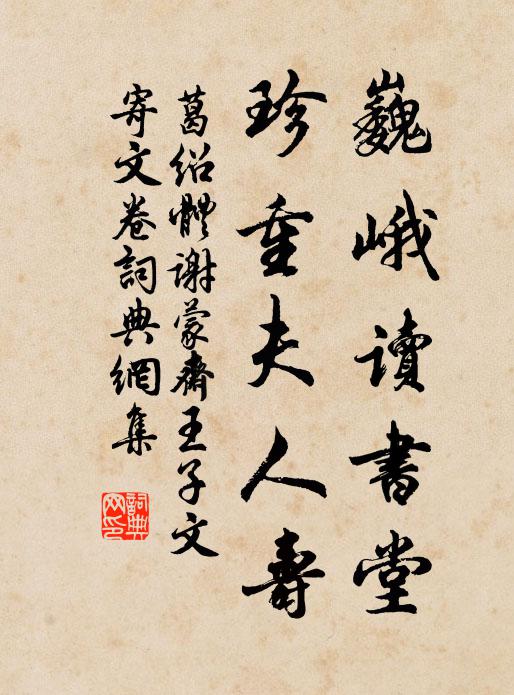 巍峨讀書堂
珍重夫人壽
葛绍體谢蒙齋王子文
寄文卷詞典網集
詞典網印